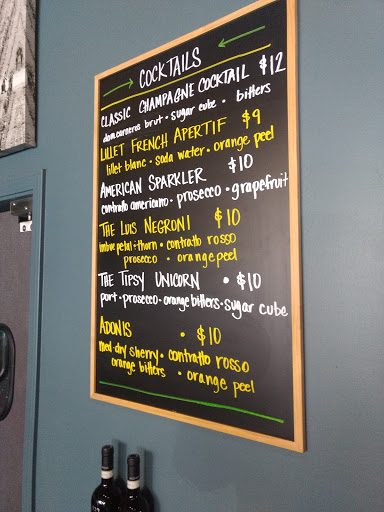 COCKTAILS
CLASSIC CHAMPAGNE COCKTAIL $12
dom carneros brut • sugar cube • bitters
LILLET FRENCH APERTIF $9
lillet blanc • soda water • orange peel
AMERICAN SPARKLER $10
contratto americano • prosecco • grapefruit
THE LUIS NEGRONI $10
imbue petal & thorn • contratto rosso
prosecco • orange peel
THE TIPSY UNICORN • $10
port • prosecco • orange bitters • sugar cube
ADONIS • $10
med-dry sherry • contratto rosso
orange bitters • orange peel